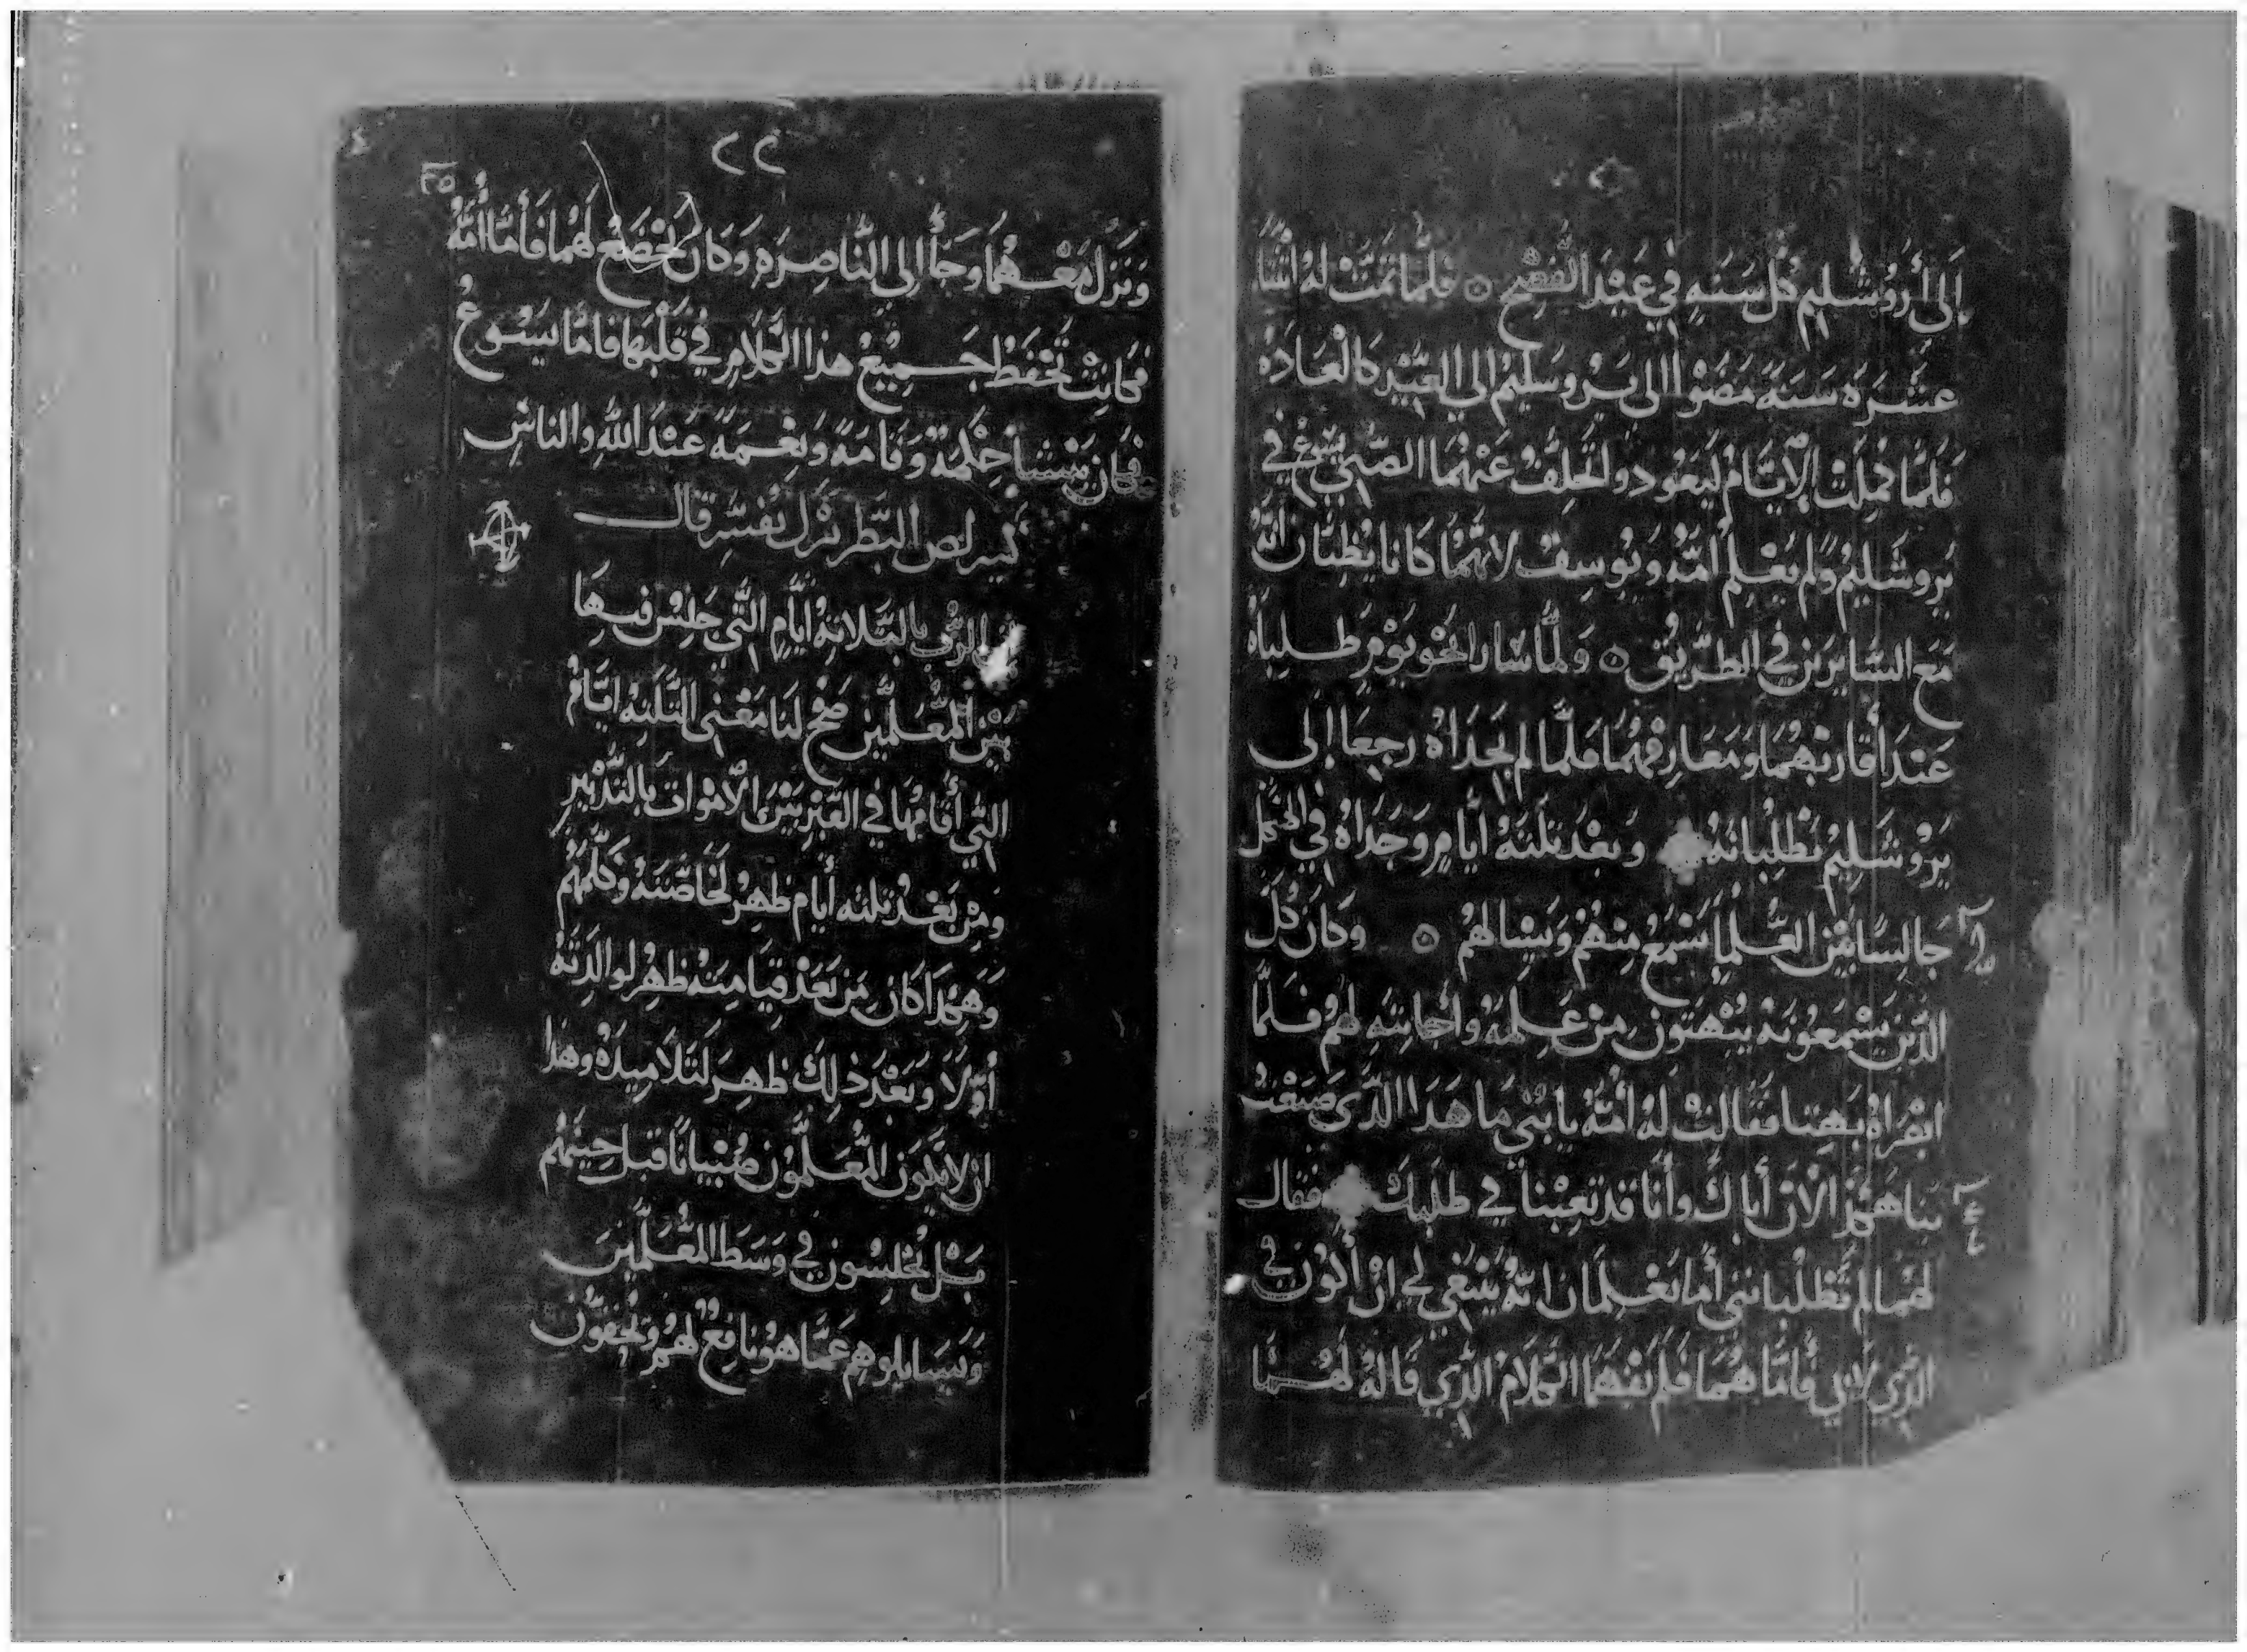 الى أروشليم كل سنه في عيد الفصح ۞ فلما تمت له اثنتا
عشره سنة مضوا الى يروسليم الي العيد كالعاده
فلما كملت الأيام ليعودو لتخلف عنهما الصبي يسوع في
يروشليم ولم يعلم أمه ويوسف لانهما كانا يظنان انه
مع السايرين في الطريق ۞ ولما سارا نحو يوم طلباه
عند أقاربهما ومعارفهما فلما لم يجداه رجعا إلى
يروشليم تطلبانه وبعد تلتة أيام وجداه في الهيكل
جالسا بين العلما يسمع منهم ويسالهم ۞ وكان كل
الدين يسمعونه يبهتون من علمه وأجابته لهم فلما
ابصراه بهتا فقالت له أمه يا بني ما هدا الدي صنعت
بنا هكذا لان أباك وأنا قد تعبنا في طلبك فقال
لهما لم تطلبانني أما تعلمان انه ينبغي لي ان أكون في
الذي لابي فأما هما فلم يفهما الكلام الذي قاله لهما
٢٢
ونزل معهما وجأ الي الناصره وكان يخضع لهما فأما أمه
فكانت تحفظ جميع هذا الكلام في قلبها فاما يسوع
فكان ينشا حكمة وقامة ونعمة عند الله والناس
كيرلص البطريرك يفسر قال
الرب بالتلاتة أيام التي جلس فيها
بين المعلمين صح لنا معني التلته ايام
التي أقامها في القبر بين الأموات بالتدبير
ومن بعد تلته أيام ظهر لخاصته وكلمهم
وهكدا كان من بعد قيامته ظهر لوالدته
أولا وبعد ذلك ظهر لتلاميده وهدا
ان لا يكون المعلمون صبيانا قبل حينهم
بل يجلسون في وسط المعلمين
ويسايلوهم عما هو نافع لهم ويخفون